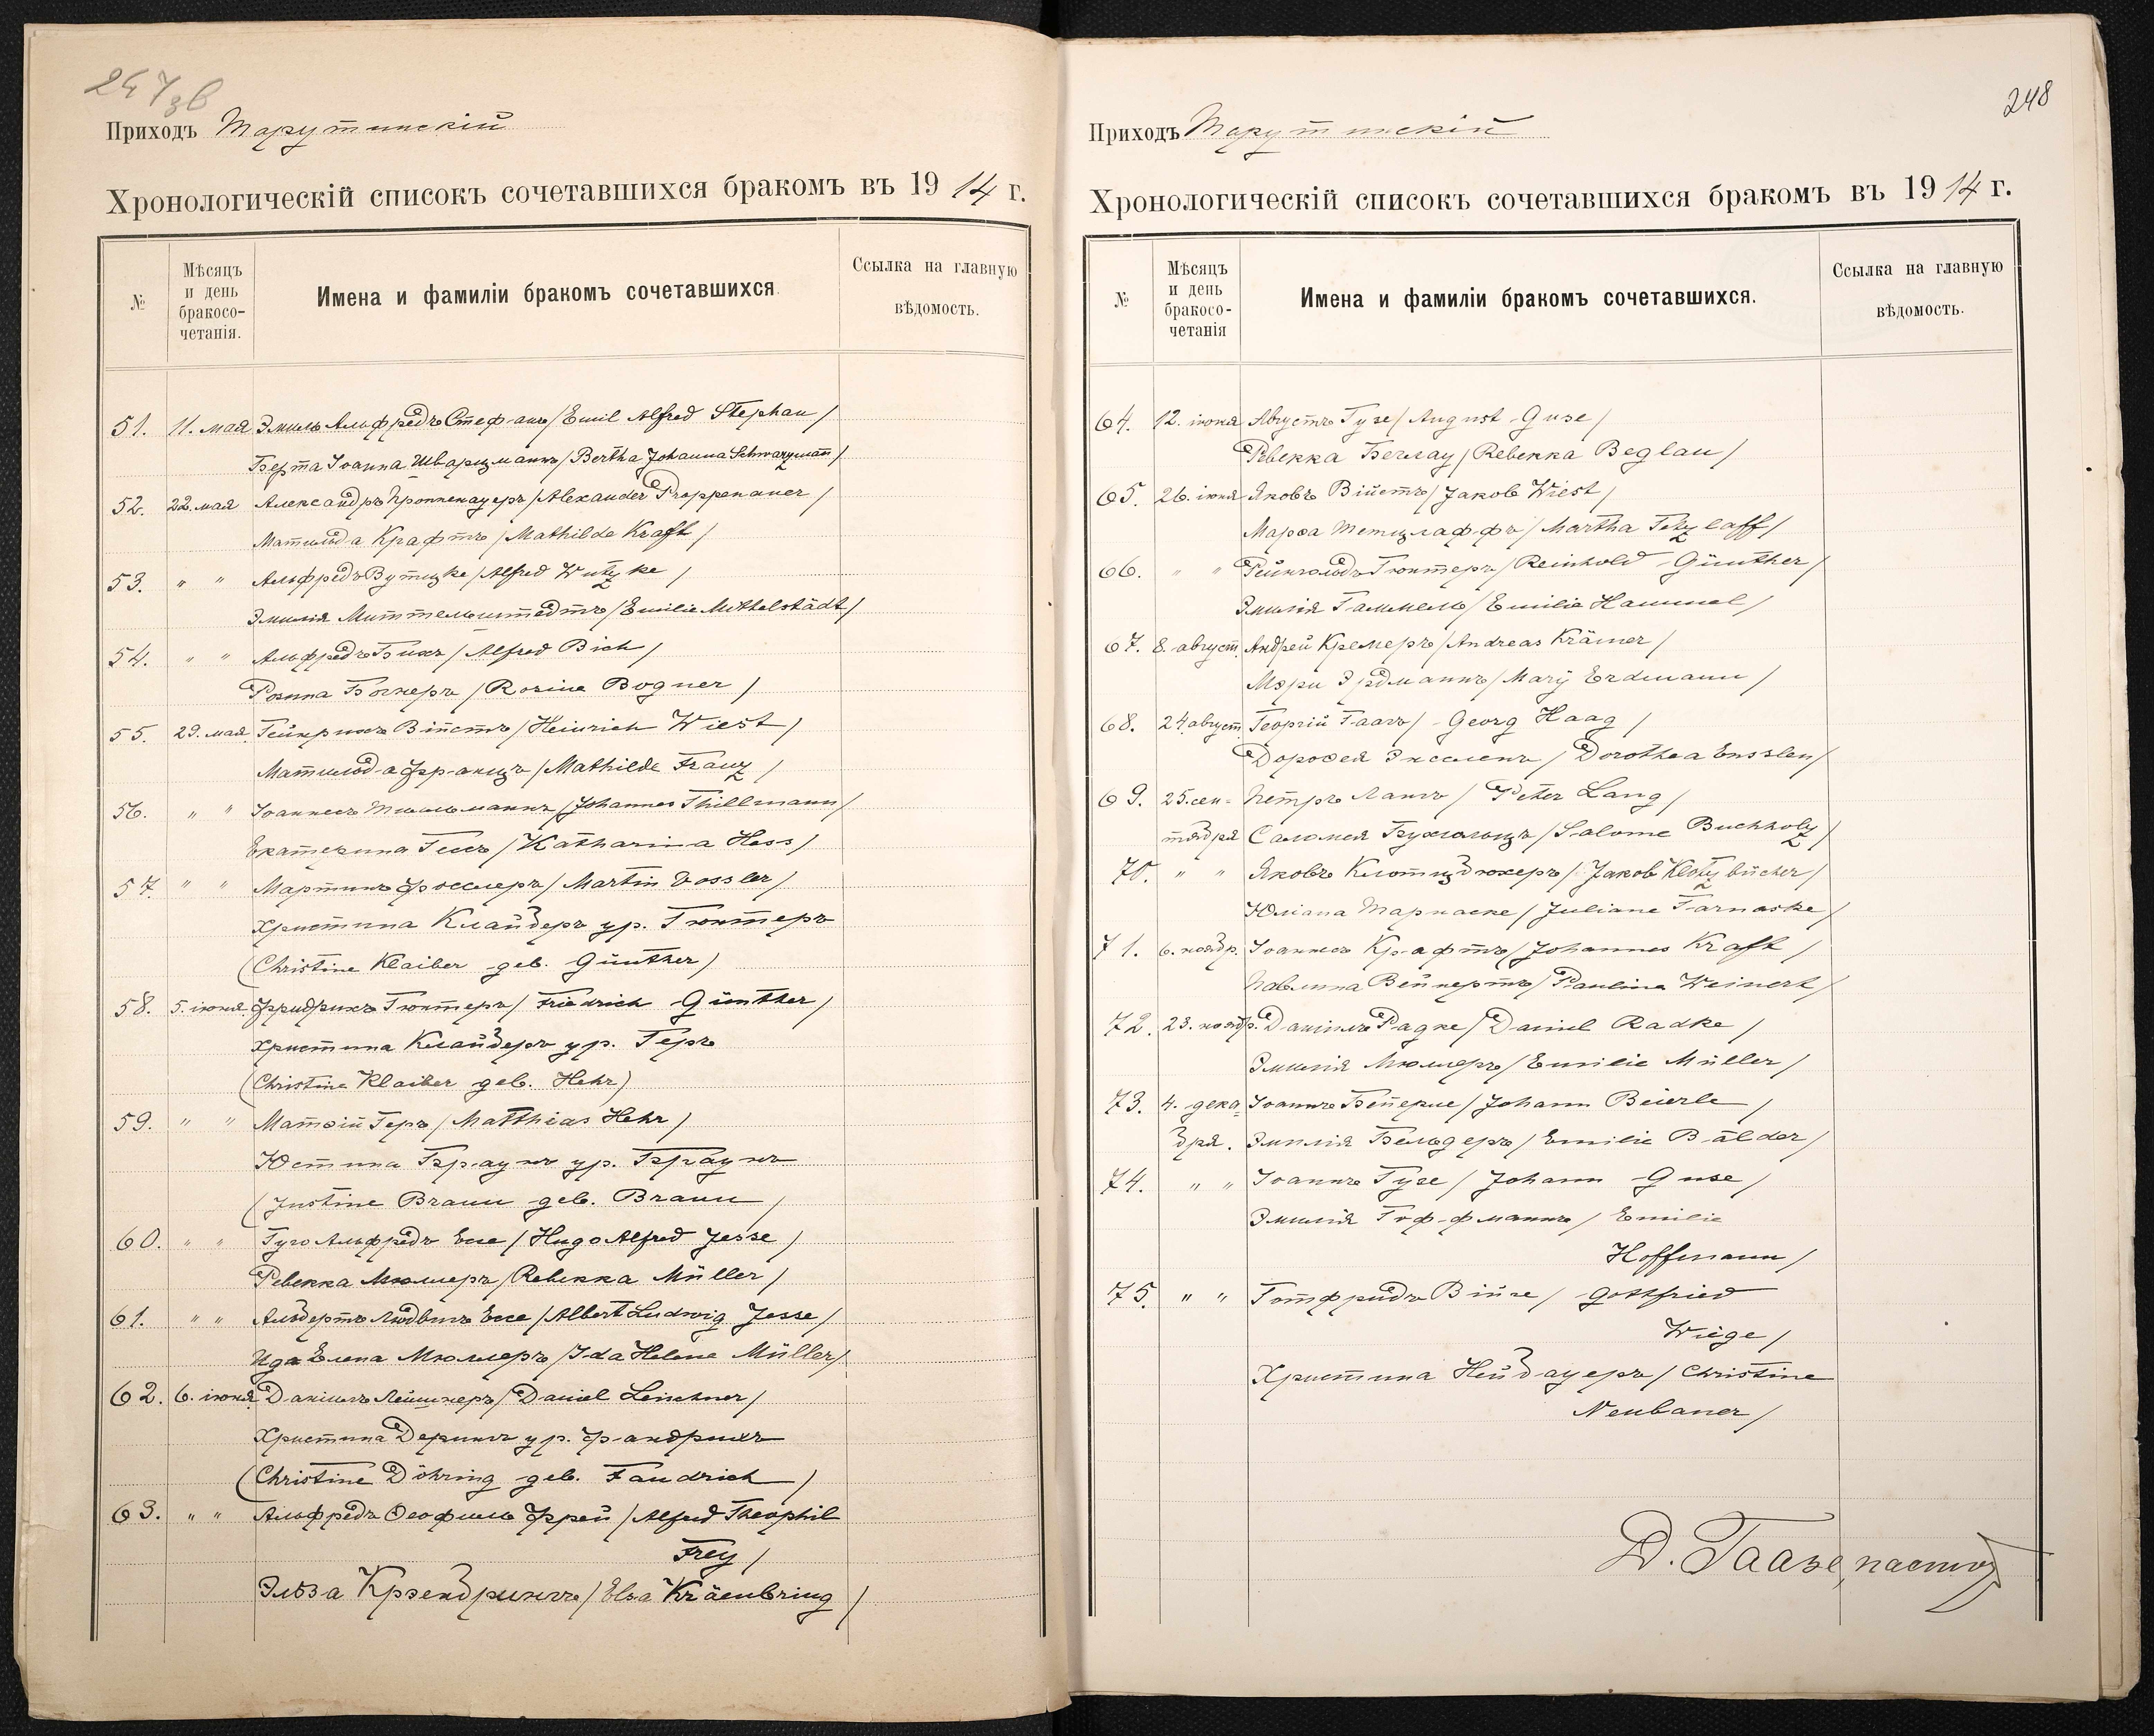 247 зв
Приходъ Тарутинскій
Хронологическій списокъ сочетавшихся бракомъ въ 1914 г.
№
Мѣсяцъ
и день
бракосо-
четанія.
Имена и фамиліи бракомъ сочетавшихся.
Ссылка на главную
вѣдомость.
51. 11. мая Эмиль Альфредъ Стефанъ /Emil Alfred Stephan/
Берта Іоанна Шварцманнъ /Bertha Johanna Schwarzmann/
52. 22. мая Александръ Проппенауеръ /Alexander Proppenauer/
Матильда Крафтъ /Mathilde Kraft/
53. " " Альфредъ Вутцке /Alfred Wutzke/
Эмилія Миттельштедтъ /Emilie Mittelstädt/
54. " " Альфредъ Бихъ /Alfred Bich/
Розина Богнеръ /Rosine Bogner/
55. 29. мая. Гейнрихъ Війстъ /Heinrich Wiest/
Матильда Францъ /Mathilde Franz/
56. " " Іоаннесъ Тильманнъ /Johannes Thillmann/
Екатерина Гесъ /Katharina Hess/
57. " " Мартинъ Фосслеръ /Martin Vossler/
Христина Клайберъ ур. Гюнтеръ
(Christine Klaiber geb. Günther)
58. 5. іюня. Фридрихъ Гюнтеръ /Friedrich Günther/
Христина Клайберъ ур. Геръ
(Christine Klaiber geb. Hehr)
59. " " Матѳій Геръ /Matthias Hehr/
Юстина Браунъ ур. Браунъ
(Justine Braun geb. Braun/
60. " " Гуго Альфредъ Ессе /Hugo Alfred Jesse/
Ревекка Мюллеръ /Rebekka Müller/
61. " " Альбертъ Людвигъ Ессе /Albert Ludwig Jesse/
Ида Елена Мюллеръ /Ida Helene Müller/
62. 6. іюня. Даніилъ Лейшнеръ /Daniel Leischner/
Христина Дерингъ ур. Фандрихъ
(Christine Döhring geb. Fandrich)
63. " " Альфредъ Ѳеофилъ Фрей /Alfred Theophil
Frey/
Эльза Крэенбрингъ /Elsa Kräenbring/
248
Приходъ Тарутинскій
Хронологическій списокъ сочетавшихся бракомъ въ 1914 г.
№
Мѣсяцъ
и день
бракосо-
четанія
Имена и фамиліи бракомъ сочетавшихся.
Ссылка на главную
вѣдомость.
64. 12. іюня Августъ Гузе /August Guse/
Ревекка Беглау /Rebekka Beglau/
65. 26. іюня Яковъ Війстъ /Jakob Wiest/
Марѳа Тетцлаффъ /Martha Tetzlaff/
66. " " Рейнгольдъ Гюнтеръ /Reinhold Günther/
Эмилія Гаммель /Emilie Hammel/
67. 8. август. Андрей Кремеръ /Andreas Krämer/
Мэри Эрдманнъ /Mary Erdmann/
68. 24. август. Георгій Гаагъ /Georg Haag/
Дороѳея Энсленъ /Dorothea Ensslen/
69. 25. сен- Петръ Лангъ /Peter Lang/
тября Саломея Бухгольцъ /Salome Buchholz/
70. " " Яковъ Клотцбюхеръ /Jakob Klotzbücher/
Юліана Тарнаске /Juliane Tarnaske/
71. 6. ноябр. Іоаннесъ Крафтъ /Johannes Kraft/
Павлина Вейнертъ /Paulina Weinert/
72. 23. ноябр. Даніилъ Радке /Daniel Radke/
Эмилія Мюллеръ /Emilie Müller/
73. 4. дека- Іоаннъ Бейерле /Johann Beierle/
бря. Эмилія Бельдеръ /Emilie Bälder/
74. " " Іоаннъ Гузе /Johann Guse/
Эмилія Гоффманнъ /Emilie
Hoffmann/
75. " " Готфридъ Війге /Gottfried
Wiege/
Христина Нейбауеръ /Christine
Neubauer/
Д. Гаазе, пастор